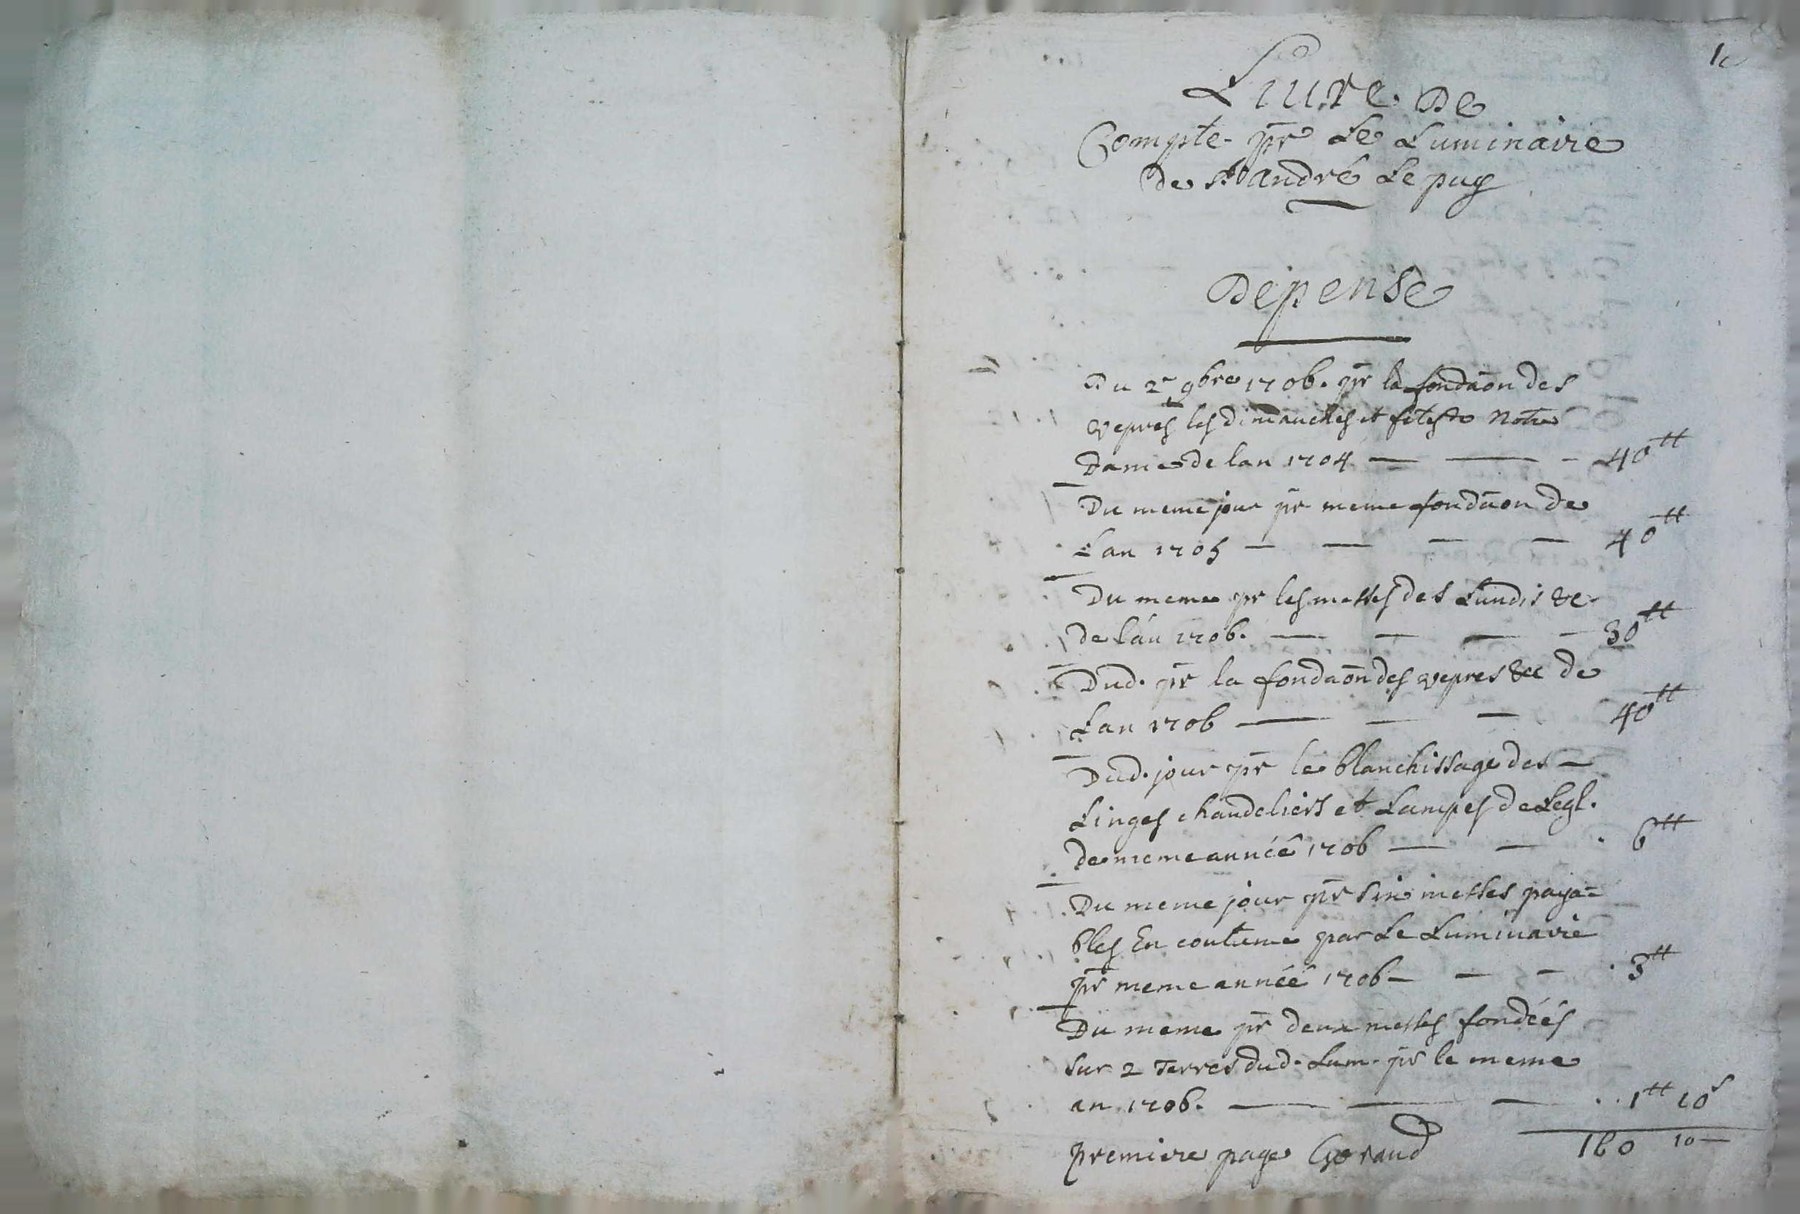 1
Liure De
Compte pr Le Luminaire
de St André Le puy
Depense
Du 2e 9bre 1706. pr la fondaon des
vepres les dimanches et fetes Notre
Dame de lan 1704 40tt
Du meme jour pr meme fondaon De
Lan 1705 40tt
Du meme pr les messes des Lundis &c
de lan 1706. 30tt
Dud. pr la fondaon des vepres &c de
Lan 1706 40tt
Dud. jour pr le blanchissage des
Linges chandeliers et Lampes de Legl.
de meme année 1706 6tt
Du meme jour pr six messes paya=
bles En coutume par Le Luminaire
pr meme année 1706 3tt
Du meme pr deux messes fondées
sur 2 Terres dud. Lum. pr le meme
an 1706. 1tt 10s
premiere page Goraud 160 10